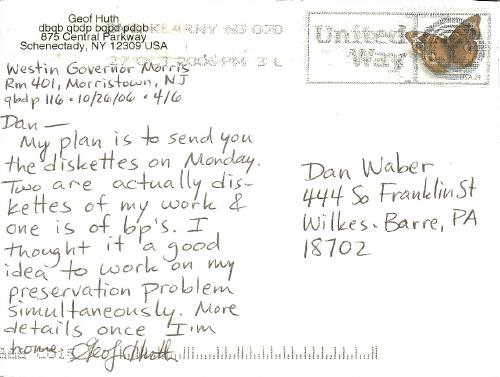 Geof Huth
dbqb qbdp bqpd pdqb
875 Central Parkway
Schenectady, NY 12309 USA
KEARNY NJ 070
27 2006 PM 3 L
United
Way
USA 24
Westin Governor Morris
Rm 401, Morristown, NJ
qbdp 116 • 10/26/06 • 4/6
Dan —
My plan is to send you
the diskettes on Monday.
Two are actually dis-
kettes of my work &
one is of bp's. I
thought it a good
idea to work on my
preservation problem
simultaneously. More
details once I'm
home. Geof Huth
Dan Waber
444 So Franklin St
Wilkes-Barre, PA
18702